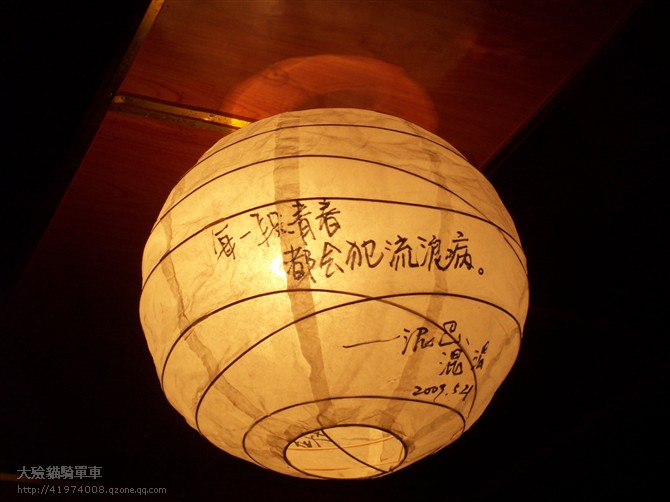 每一段青春
都会犯流浪病。
——泥巴、
混混
2009.5.21
大殮貓騎單車
http://41974008.qzone.qq.com